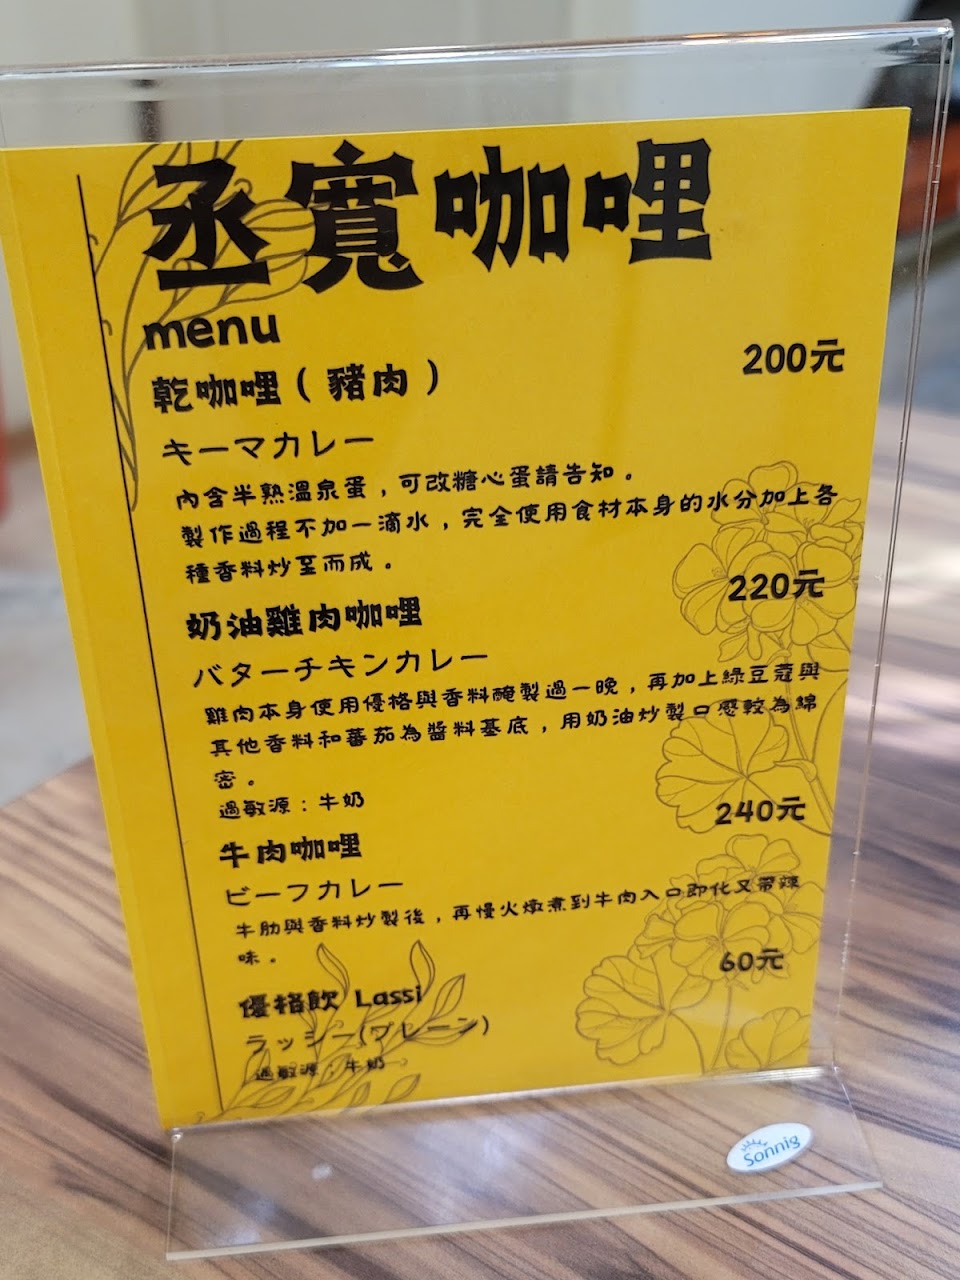 丞寬咖哩
menu
乾咖哩（豬肉） 200元
キーマカレー
內含半熟溫泉蛋，可改糖心蛋請告知。
製作過程不加一滴水，完全使用食材本身的水分加上各
種香料炒至而成。
奶油雞肉咖哩 220元
バターチキンカレー
雞肉本身使用優格與香料醃製過一晚，再加上綠豆蔻與
其他香料和蕃茄為醬料基底，用奶油炒製口感較為綿
密。
過敏源：牛奶
牛肉咖哩 240元
ビーフカレー
牛肋與香料炒製後，再慢火燉煮到牛肉入口即化又帶辣
味。
優格飲 Lassi 60元
ラッシー(プレーン)
過敏源：牛奶
Sonnig